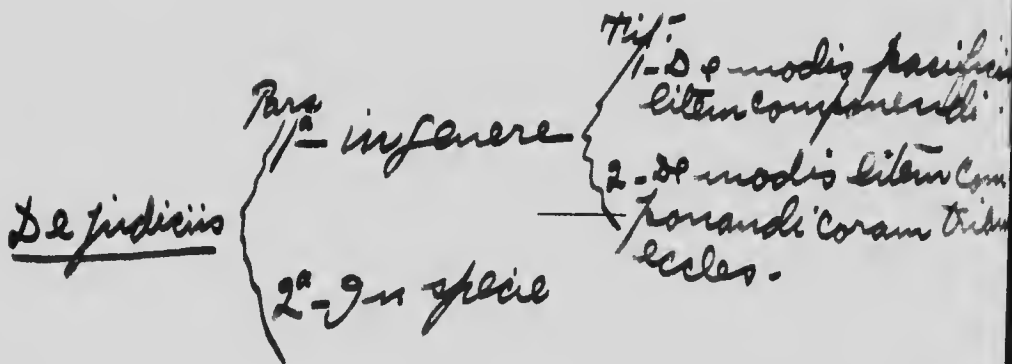 De judiciis
Pars
1ª - in genere
2ª - In specie
Tit.
1 - De modis pacificis
litem componendi.
2 - De modis litem com
ponendi coram
eccles.